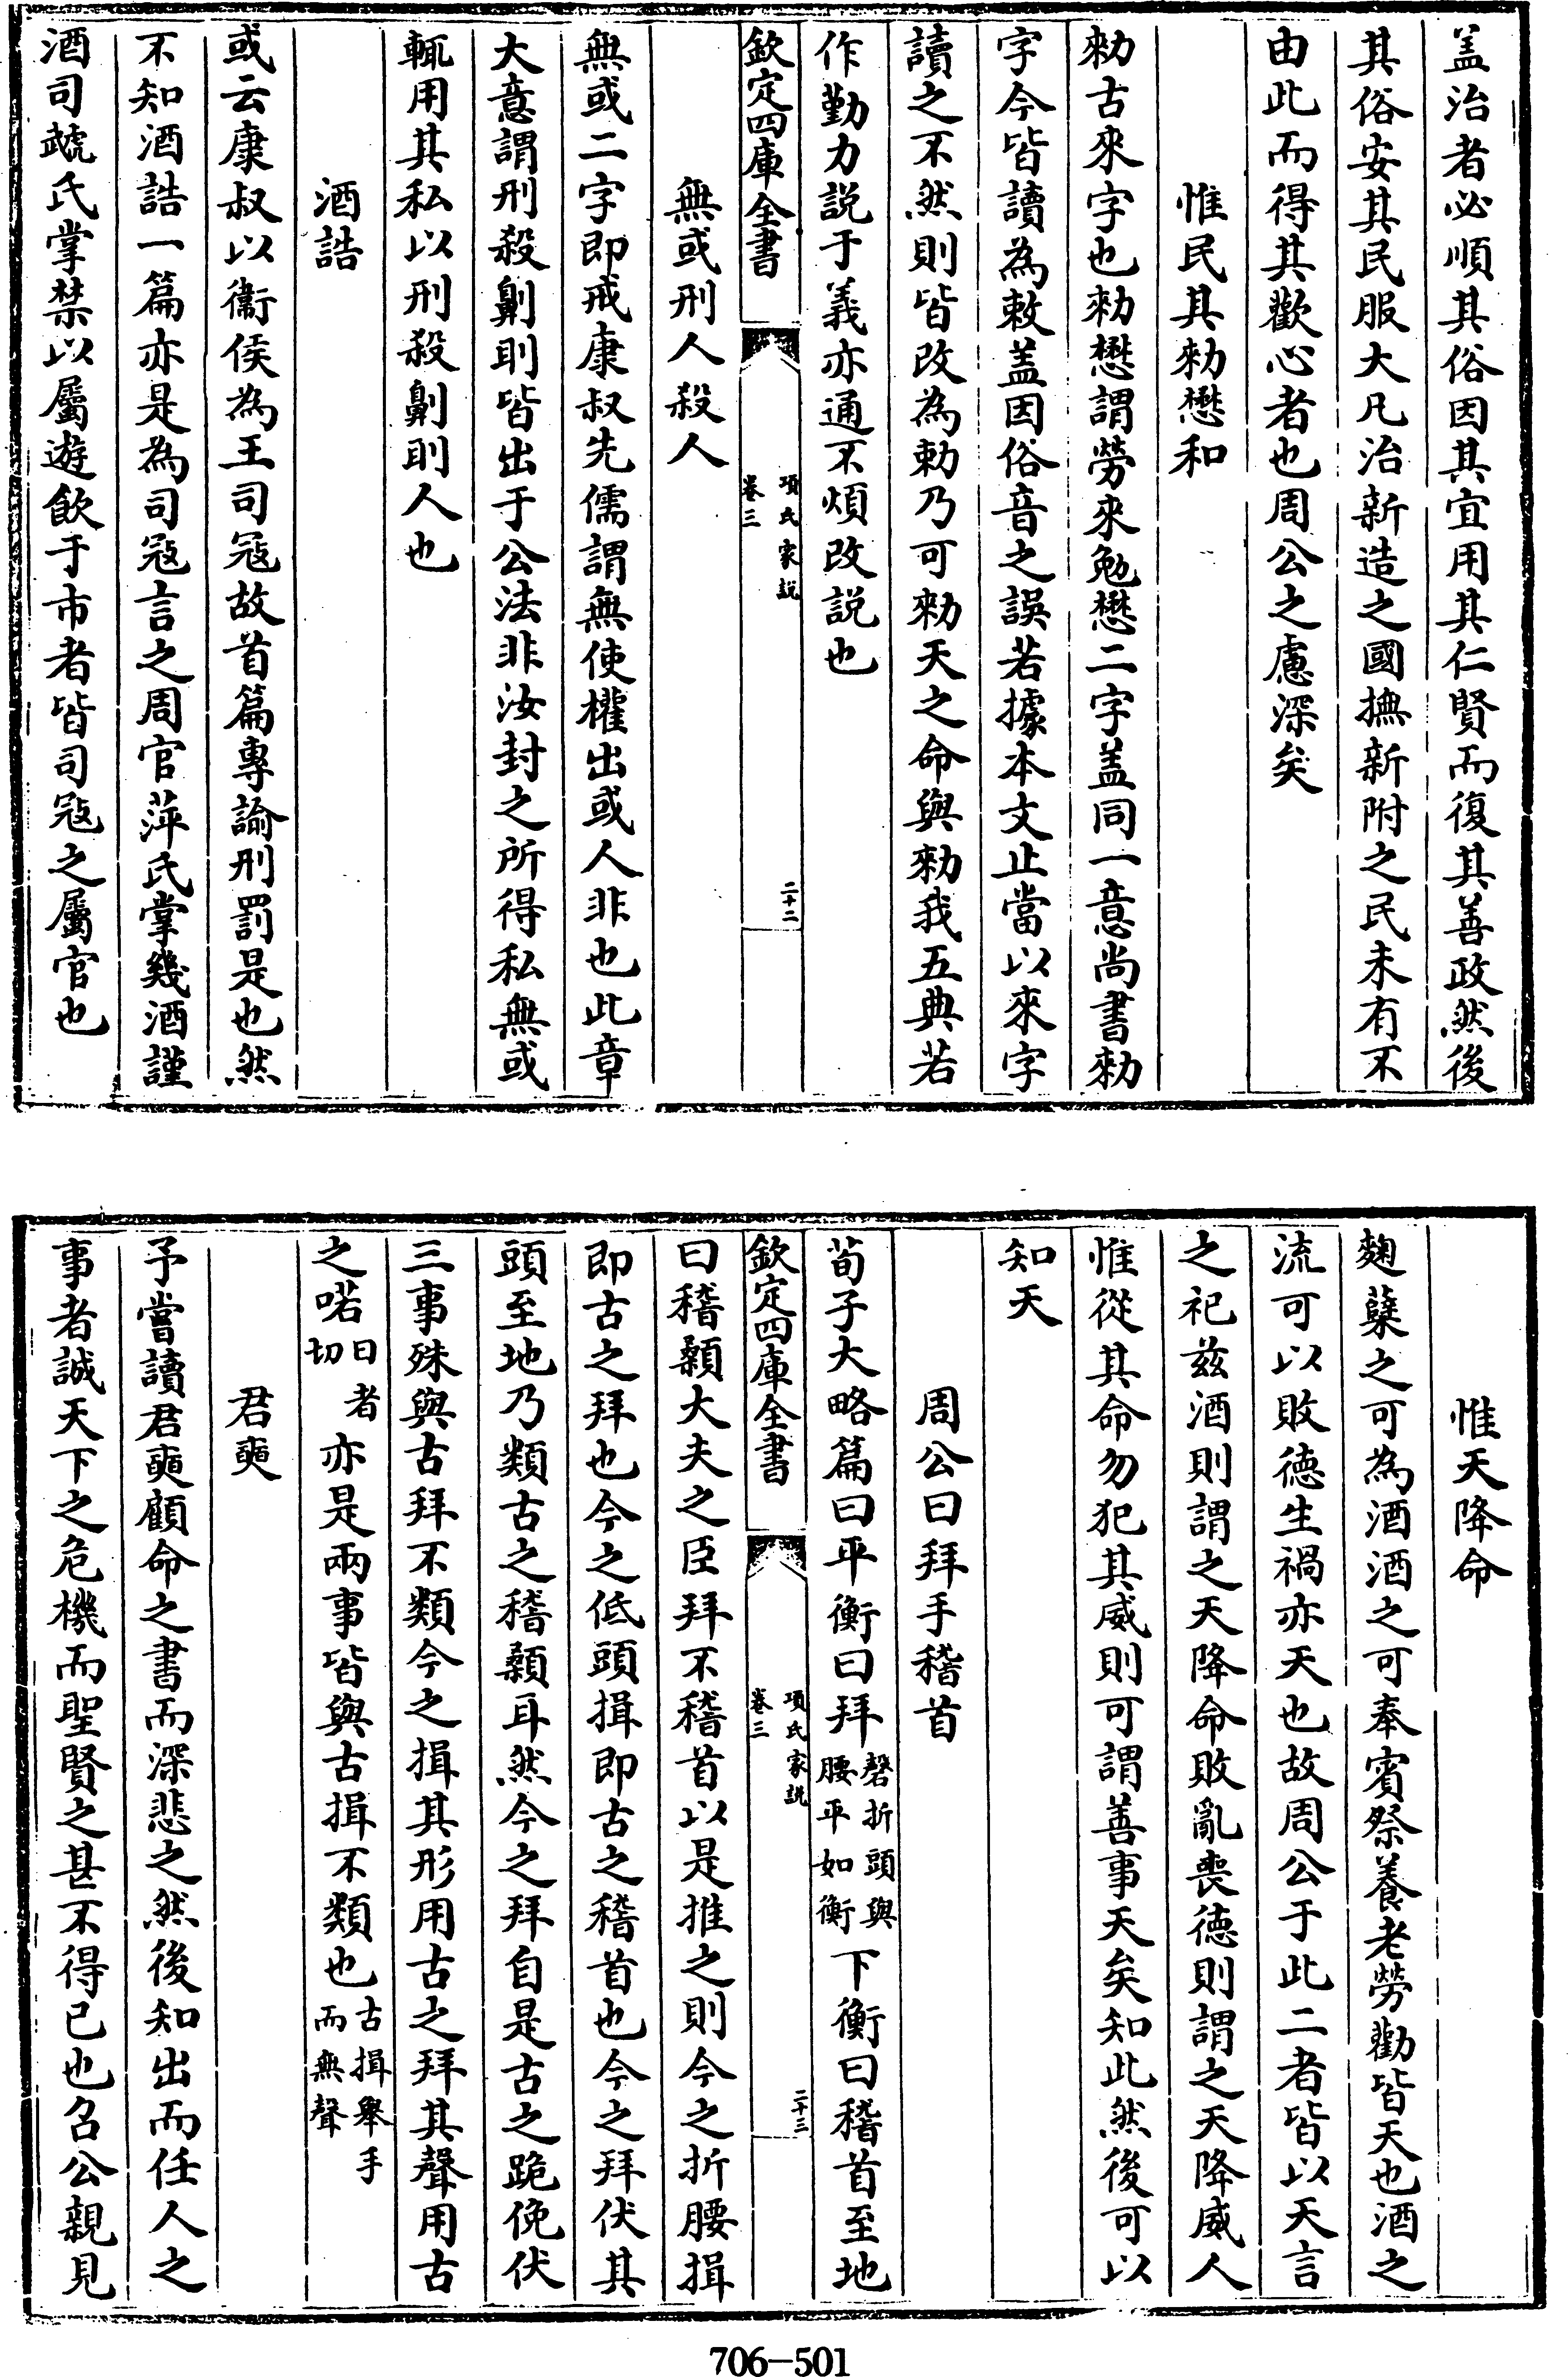 盖治者必順其俗因其宜用其仁賢而復其善政然後
其俗安其民服大凡治新造之國撫新附之民未有不
由此而得其歡心者也周公之慮深矣
惟民其勑懋和
勑古來字也勑懋謂勞來勉懋二字盖同一意尚書勑
字今皆讀為敕盖因俗音之誤若據本文止當以來字
讀之不然則皆改為勅乃可勑天之命與勑我五典若
作勤力説于義亦通不煩改説也
欽定四庫全書
項氏家説
卷三
二十二
無或刑人殺人
無或二字即戒康叔先儒謂無使權出或人非也此章
大意謂刑殺劓刵皆出于公法非汝封之所得私無或
輒用其私以刑殺劓刵人也
酒誥
或云康叔以衞侯為王司冦故首篇專諭刑罰是也然
不知酒誥一篇亦是為司冦言之周官萍氏掌幾酒謹
酒司虣氏掌禁以屬遊飲于市者皆司冦之屬官也
惟天降命
麴糵之可為酒酒之可奉賓祭養老勞勸皆天也酒之
流可以敗德生禍亦天也故周公于此二者皆以天言
之祀兹酒則謂之天降命敗亂喪德則謂之天降威人
惟從其命勿犯其威則可謂善事天矣知此然後可以
知天
周公曰拜手稽首
荀子大略篇曰平衡曰拜磬折頭與腰平如衡下衡曰稽首至地
欽定四庫全書
項氏家説
卷三
二十三
曰稽顙大夫之臣拜不稽首以是推之則今之折腰揖
即古之拜也今之低頭揖即古之稽首也今之拜伏其
頭至地乃類古之稽顙耳然今之拜自是古之跪俛伏
三事殊與古拜不類今之揖其形用古之拜其聲用古
之喏日者切亦是兩事皆與古揖不類也古揖舉手而無聲
君奭
予嘗讀君奭顧命之書而深悲之然後知出而任人之
事者誠天下之危機而聖賢之甚不得已也召公親見
706-501